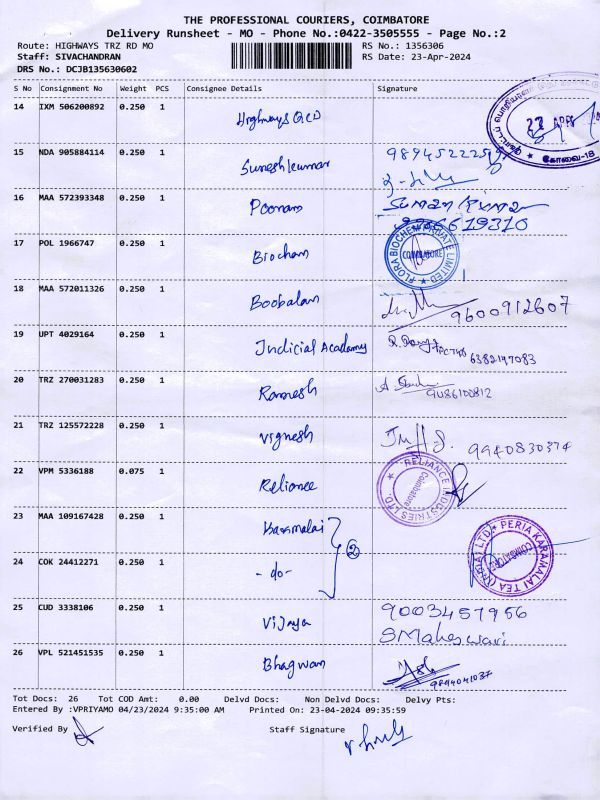 THE PROFESSIONAL COURIERS, COIMBATORE
Delivery Runsheet - MO - Phone No.:0422-3505555 - Page No.:2
Route: HIGHWAYS TRZ RD MO
RS No.: 1356306
Staff: SIVACHANDRAN
RS Date: 23-Apr-2024
DRS No.: DCJB135630602
S No Consignment No Weight PCS Consignee Details Signature
14 IXM 506200892 0.250 1 Highways
கோவை-18
15 NDA 905884114 0.250 1 Sureshkumar
16 MAA 572393348 0.250 1 Poonam
17 POL 1966747 0.250 1 Biochem
FLORA BIOCHEM PRIVATE LIMITED
COIMBATORE
18 MAA 572011326 0.250 1 Boobalan 9600912607
19 UPT 4029164 0.250 1 Judicial Academy
20 TRZ 270031283 0.250 1 Ramesh 9486100812
21 TRZ 125572228 0.250 1 Vignesh 9940830374
22 VPM 5336188 0.075 1 Reliance
RELIANCE INDUSTRIES LTD.
Coimbatore
23 MAA 109167428 0.250 1 Karamalai
2
PERIA KARAMALAI TEA
COIMBATORE
24 COK 24412271 0.250 1 -do-
25 CUD 3338106 0.250 1 Vijaya 9003457956
S Maheswari
26 VPL 521451535 0.250 1 Bhagwan
Tot Docs: 26 Tot COD Amt: 0.00 Delvd Docs: Non Delvd Docs: Delvy Pts:
Entered By :VPRIYAMO 04/23/2024 9:35:00 AM Printed On: 23-04-2024 09:35:59
Verified By
Staff Signature